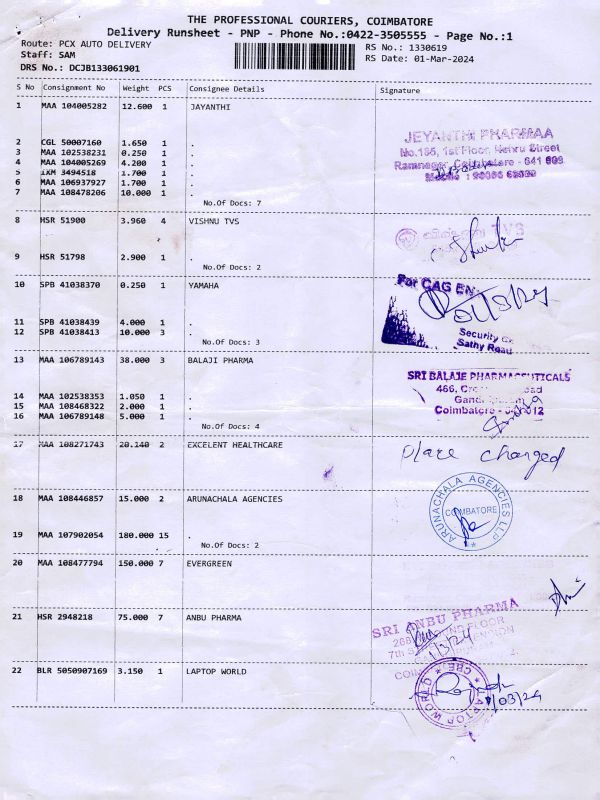 THE PROFESSIONAL COURIERS, COIMBATORE
Delivery Runsheet - PNP - Phone No.:0422-3505555 - Page No.:1
Route: PCX AUTO DELIVERY RS No.: 1330619
Staff: SAM RS Date: 01-Mar-2024
DRS No.: DCJB133061901
S No Consignment No Weight PCS Consignee Details Signature
1 MAA 104005282 12.600 1 JAYANTHI
JEYANTHI PHARMAA
No.166, 1st Floor, Nehru Street
Ramnagar, Coimbatore - 641 009
2 CGL 50007160 1.650 1 .
3 MAA 102538231 0.250 1 .
4 MAA 104005269 4.200 1 .
5 IXM 3494518 1.700 1 .
6 MAA 106937927 1.700 1 .
7 MAA 108478206 10.000 1 .
No.Of Docs: 7
8 HSR 51900 3.960 4 VISHNU TVS
TVS
9 HSR 51798 2.900 1 .
No.Of Docs: 2
10 SPB 41038370 0.250 1 YAMAHA
For CAG EN
01/3/24
Security
Sathy Road
11 SPB 41038439 4.000 1 .
12 SPB 41038413 10.000 3 .
No.Of Docs: 3
13 MAA 106789143 38.000 3 BALAJI PHARMA
SRI BALAJE PHARMACEUTICALS
466,
Coimbatore
14 MAA 102538353 1.050 1 .
15 MAA 108468322 2.000 1 .
16 MAA 106789148 5.000 1 .
No.Of Docs: 4
17 MAA 108271743 20.140 2 EXCELENT HEALTHCARE
place changed
18 MAA 108446857 15.000 2 ARUNACHALA AGENCIES
ARUNACHALA AGENCIES LLP
COIMBATORE
19 MAA 107902054 180.000 15 .
No.Of Docs: 2
20 MAA 108477794 150.000 7 EVERGREEN
21 HSR 2948218 75.000 7 ANBU PHARMA
SRI ANBU PHARMA
1/3/24
22 BLR 5050907169 3.150 1 LAPTOP WORLD
LAPTOP WORLD
CBE
1/03/24